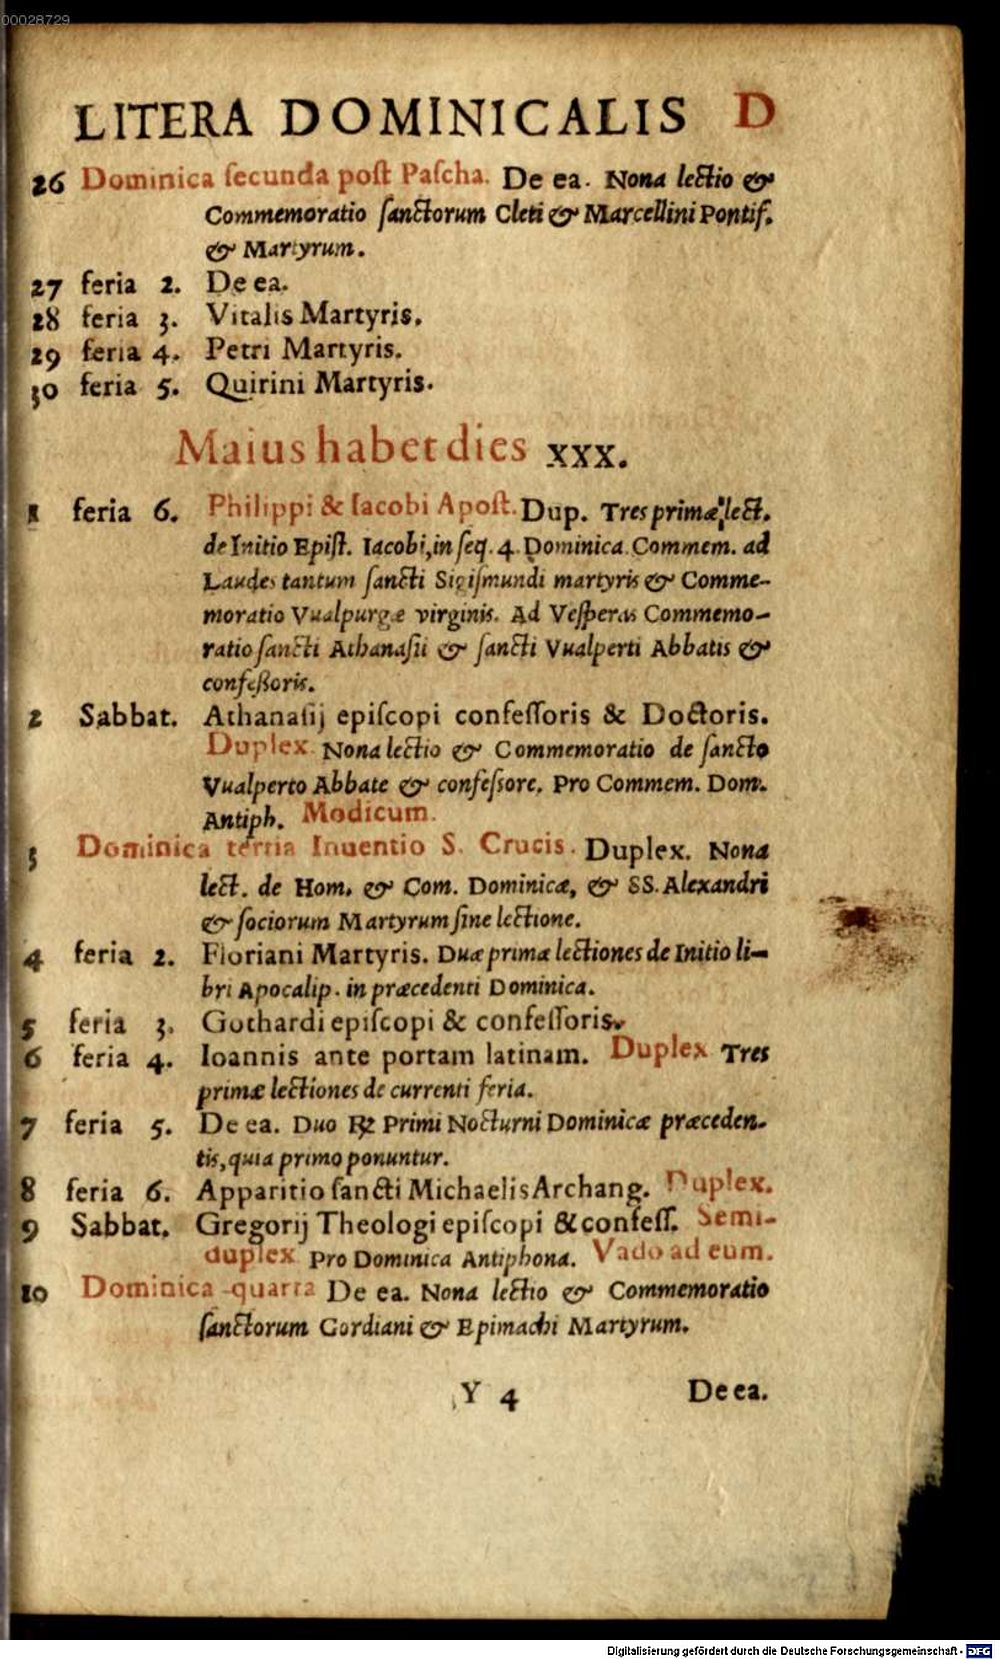 00028729
LITERA DOMINICALIS D
26 Dominica ſecunda poſt Paſcha. De ea. Nona lectio &
Commemoratio ſanctorum Cleti & Marcellini Pontif.
& Martyrum.
27 feria 2. De ea.
28 feria 3. Vitalis Martyris.
29 feria 4. Petri Martyris.
30 feria 5. Quirini Martyris.
Maius habet dies XXX.
1 feria 6. Philippi & Iacobi Apoſt. Dup. Tres primæ lect.
de Initio Epiſt. Iacobi, in ſeq. 4. Dominica. Commem. ad
Laudes tantum ſancti Sigiſmundi martyris & Comme-
moratio Vualpurgæ virginis. Ad Veſperas Commemo-
ratio ſancti Athanaſii & ſancti Vualperti Abbatis &
confeſſoris.
2 Sabbat. Athanaſij epiſcopi confeſſoris & Doctoris.
Duplex. Nona lectio & Commemoratio de ſancto
Vualperto Abbate & confeſſore. Pro Commem. Dom.
Antiph. Modicum.
3 Dominica tertia Inuentio S. Crucis. Duplex. Nona
lect. de Hom. & Com. Dominicæ, & SS. Alexandri
& ſociorum Martyrum ſine lectione.
4 feria 2. Floriani Martyris. Duæ primæ lectiones de Initio li-
bri Apocalip. in præcedenti Dominica.
5 feria 3. Gothardi epiſcopi & confeſſoris.
6 feria 4. Ioannis ante portam latinam. Duplex Tres
primæ lectiones de currenti feria.
7 feria 5. De ea. Duo ℟ Primi Nocturni Dominicæ præceden-
tis, quia primo ponuntur.
8 feria 6. Apparitio ſancti Michaelis Archang. Duplex.
9 Sabbat. Gregorij Theologi epiſcopi & confeſſ. Semi-
duplex Pro Dominica Antiphona. Vado ad eum.
10 Dominica quarta De ea. Nona lectio & Commemoratio
ſanctorum Gordiani & Epimachi Martyrum.
Y 4 De ea.
Digitalisierung gefördert durch die Deutsche Forschungsgemeinschaft - DFG